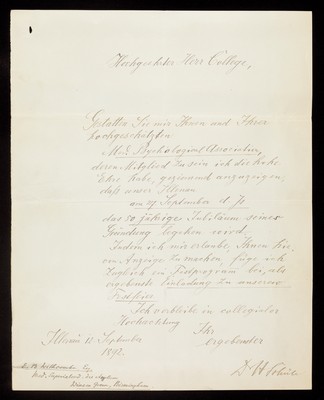 Hochgeehrter Herr College,
Gestatten Sie mir Ihnen und Ihrer
hochgeschätzten
Med. Psychological Association,
deren Mitglied zu sein ich die hohe
Ehre habe, geziemend anzuzeigen,
daß unser Illenau
am 27 September d. Js
das 50 jährige Jubiläum seiner
Gründung begehen wird.
Indem ich mir erlaube, Ihnen hie-
von Anzeige zu machen, füge ich
zugleich ein Festprogram bei, als
ergebenste Einladung zu unserer
Festfeier.
Ich verbleibe in collegialer
Hochachtung
Ihr
ergebenster
Illenau 15 September
1892.
Dr H Schüle
Whitcombe Esq
Med. Superintend.
Green, Birmingham